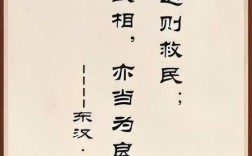 则救民；
相，亦当为
----东汉·